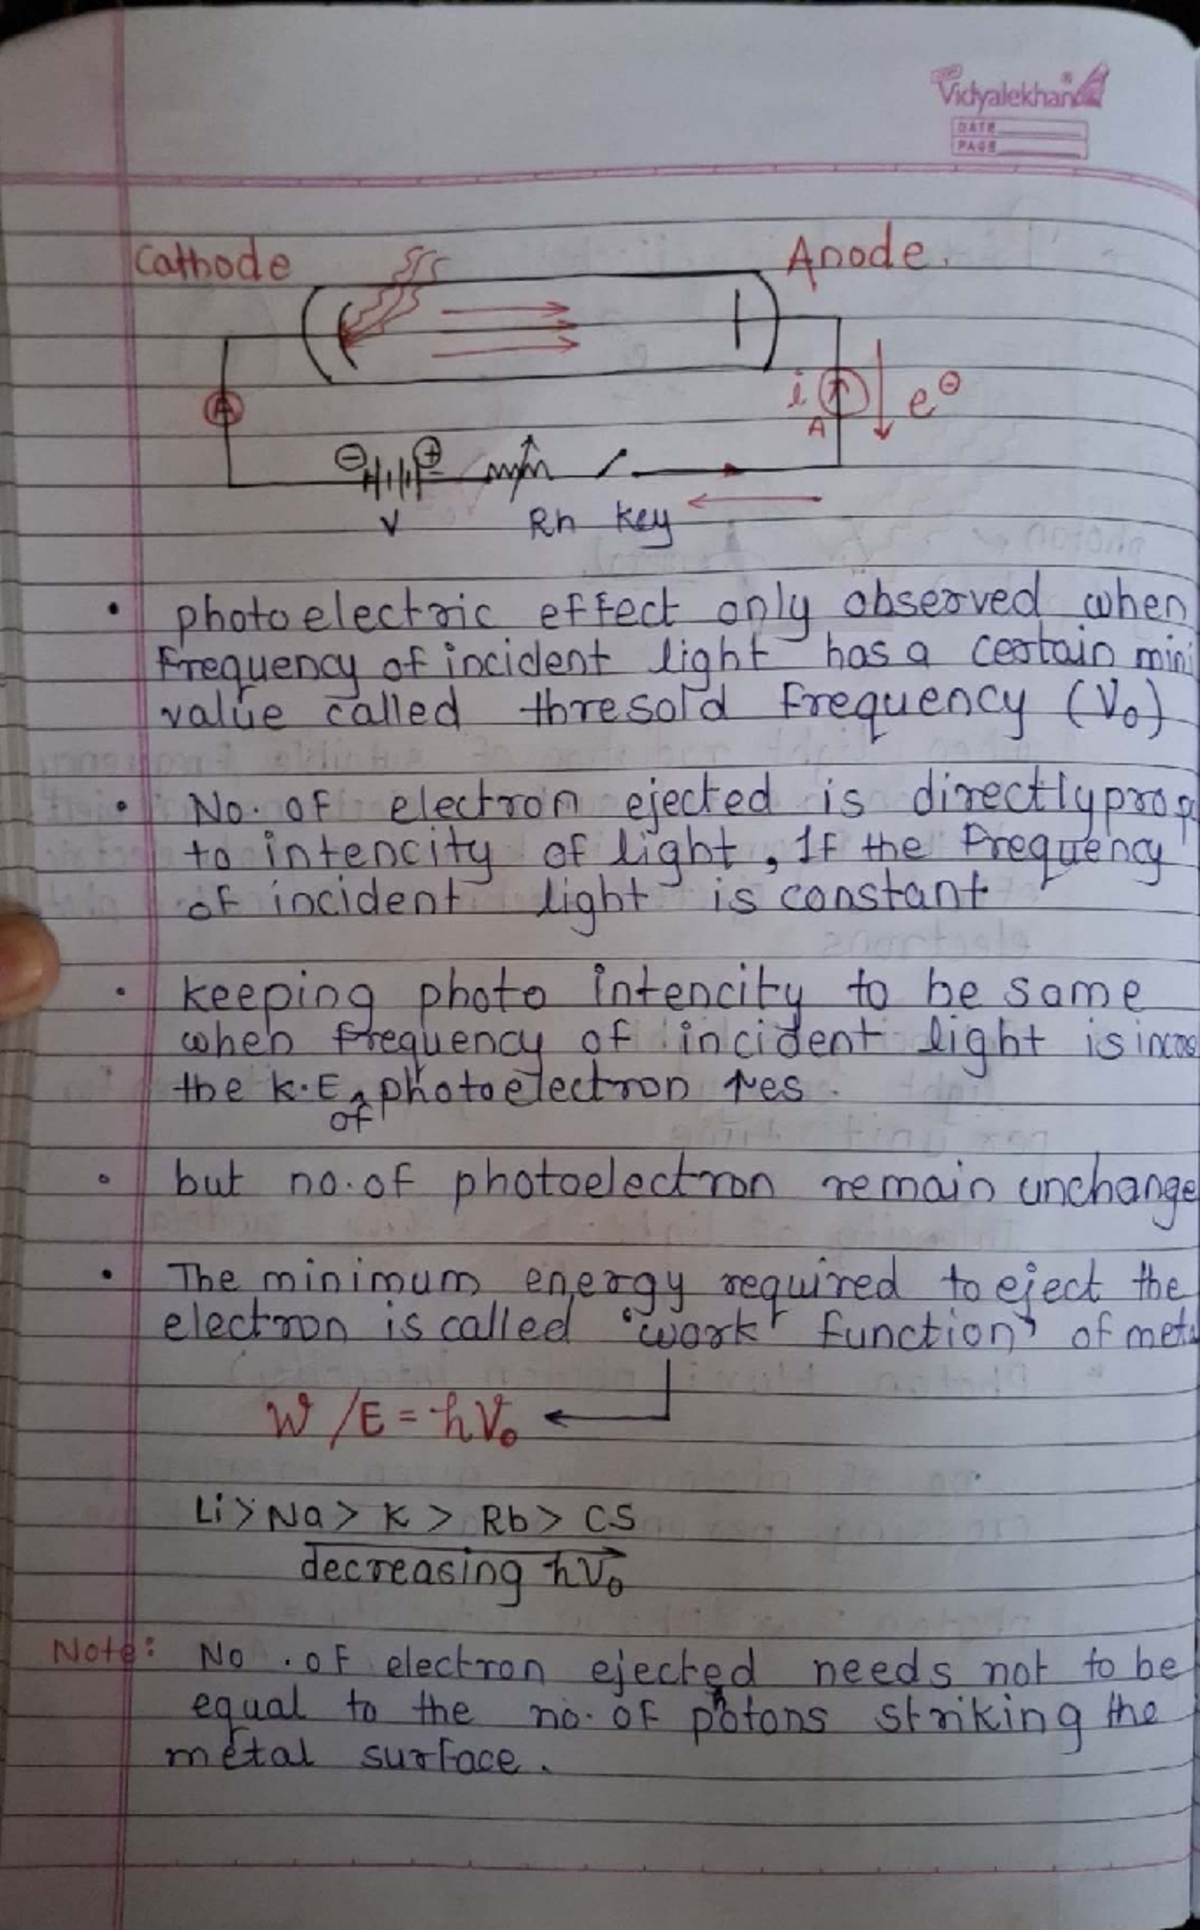 Vidyalekhan
DATE
PAGE
Cathode
Anode.
A
i
A
e⊖
⊖
⊕
V
Rh key
• photoelectric effect only observed when
frequency of incident light has a certain mini
value called thresold frequency (V₀)
• No. of electron ejected is directly prop
to intencity of light, If the frequency
of incident light is constant
• keeping photo intencity to be same
when frequency of incident light is incre
the K.E of photoelectron ↑es.
• but no. of photoelectron remain unchange
• The minimum energy required to eject the
electron is called "work function" of meta
W/E = hV₀
Li > Na > K > Rb > CS
decreasing hV₀
Note: No. of electron ejected needs not to be
equal to the no. of photons striking the
metal surface.